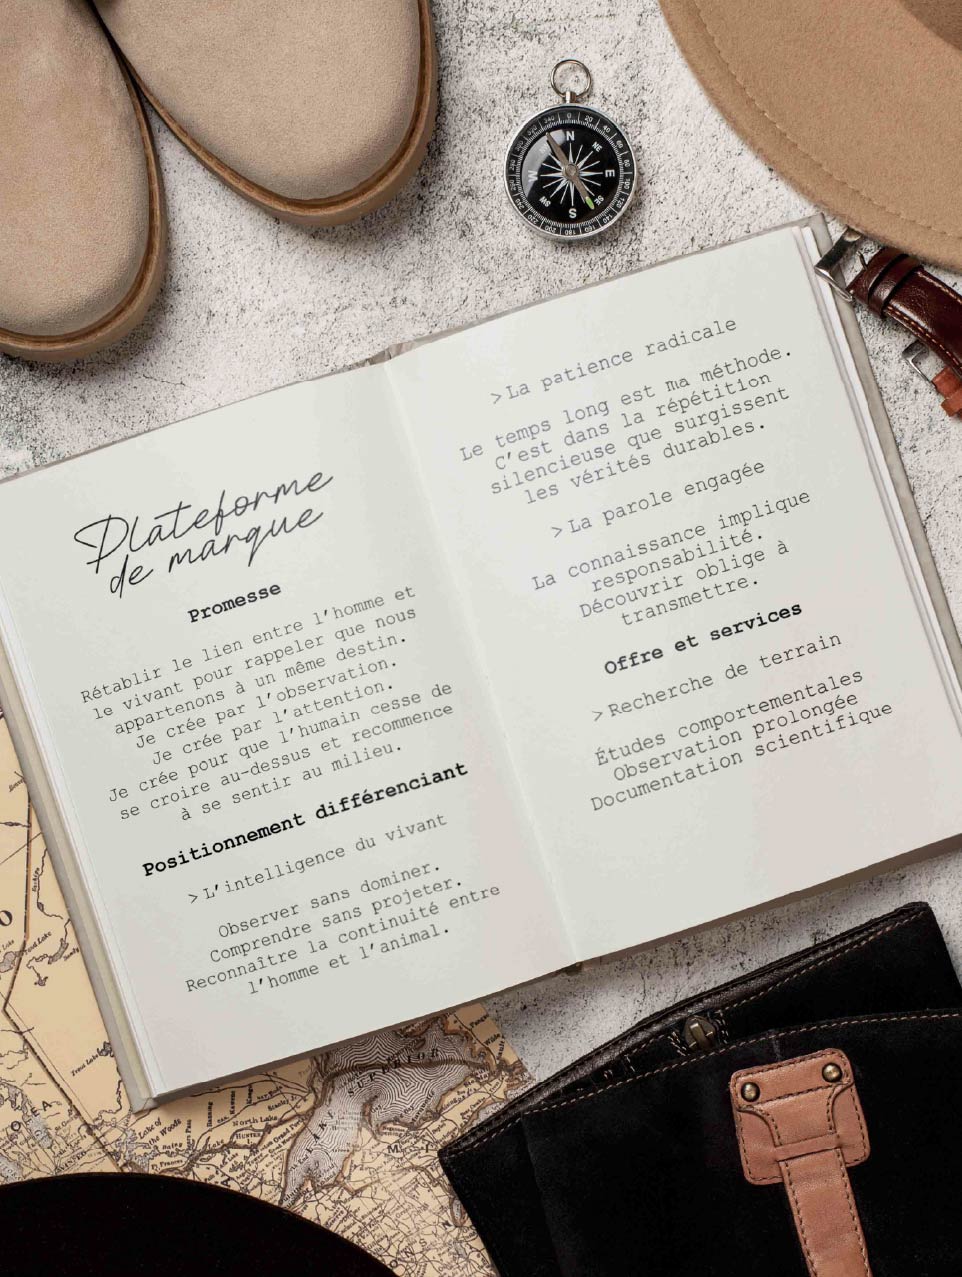 Plateforme
de marque
Promesse
Rétablir le lien entre l'homme et
le vivant pour rappeler que nous
appartenons à un même destin.
Je crée par l'observation.
Je crée par l'attention.
Je crée pour que l'humain cesse de
se croire au-dessus et recommence
à se sentir au milieu.
Positionnement différenciant
>L'intelligence du vivant
Observer sans dominer.
Comprendre sans projeter.
Reconnaître la continuité entre
l'homme et l'animal.
>La patience radicale
Le temps long est ma méthode.
C'est dans la répétition
silencieuse que surgissent
les vérités durables.
>La parole engagée
La connaissance implique
responsabilité.
Découvrir oblige à
transmettre.
Offre et services
>Recherche de terrain
Études comportementales
Observation prolongée
Documentation scientifique
N
NE
E
SE
S
SW
W
SUPERIOR
LAKE
North Lake
HUNTER
Lake of
the Woods